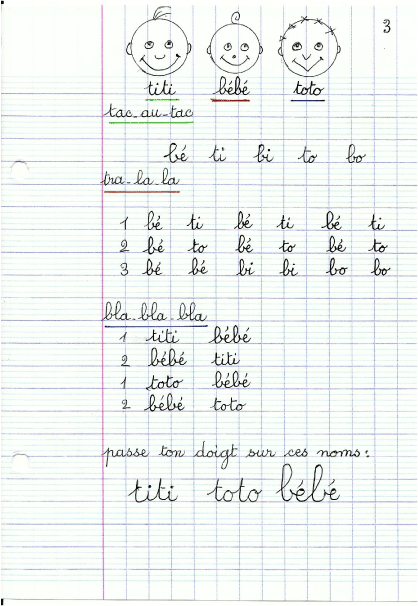 3
titi bébé toto
tac-au-tac
bé ti bi to bo
tra-la-la
1 bé ti bé ti bé ti
2 bé to bé to bé to
3 bé bé bi bi bo bo
bla-bla-bla
1 titi bébé
2 bébé titi
1 toto bébé
2 bébé toto
passe ton doigt sur ces noms :
titi toto bébé